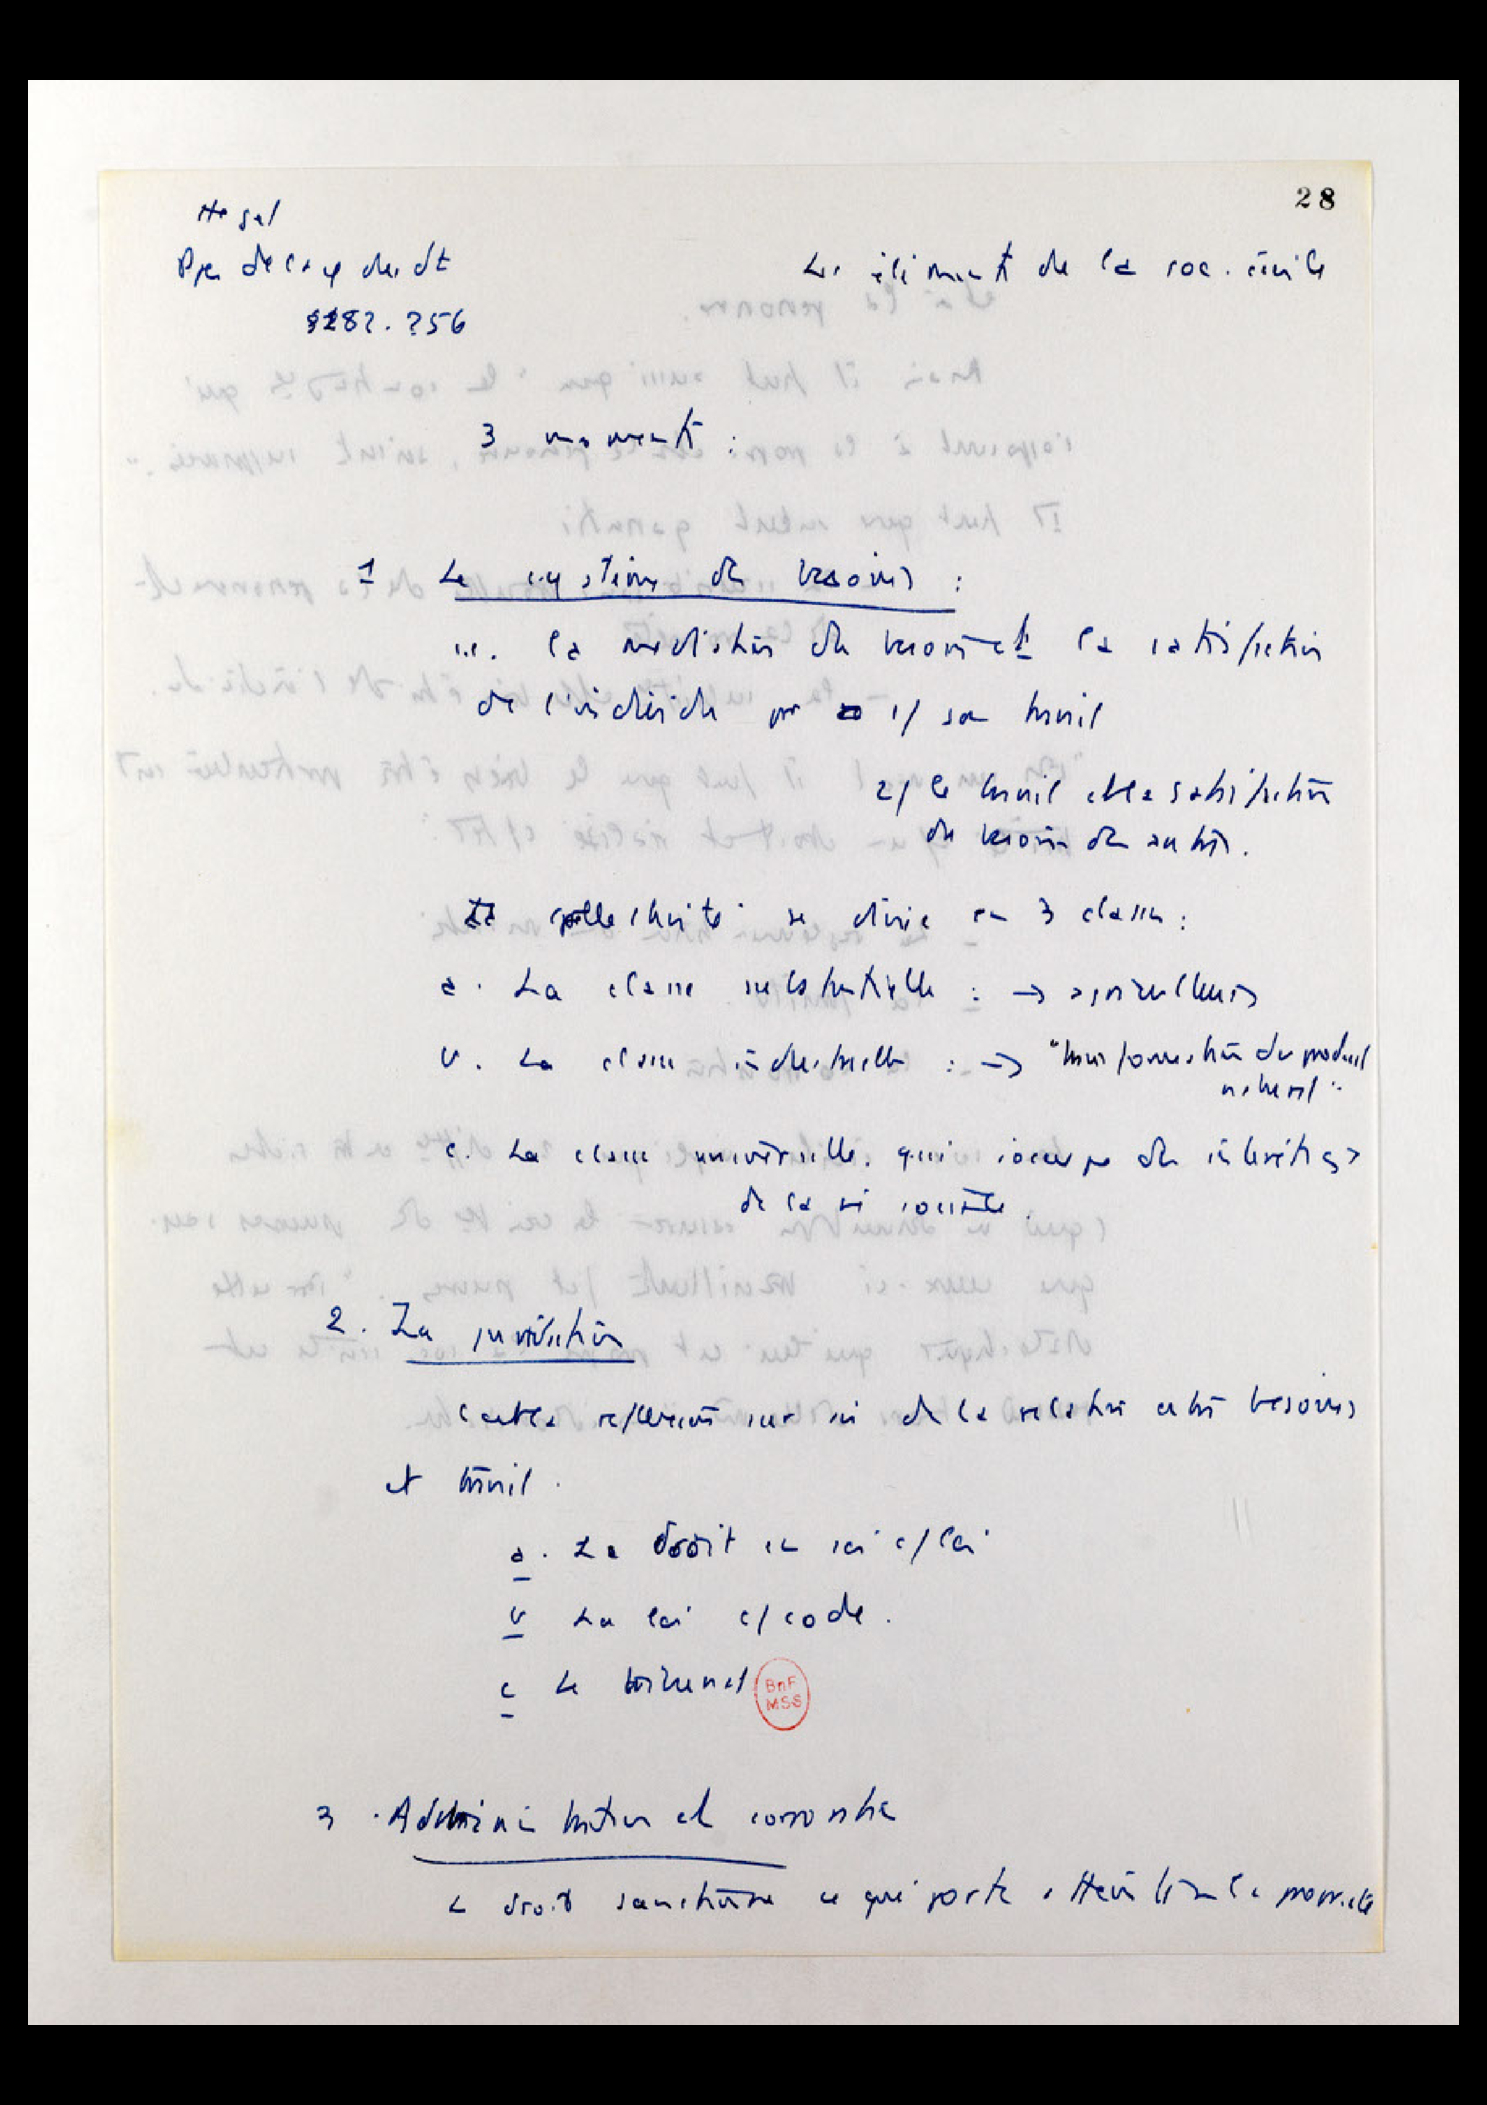 28
Hegel
Ppes de la φ du dt
§182-256
Les éléments de la soc. civile
3 moments :
1 Le système des besoins :
i.e. la médiation du besoin et la satisfaction
de l'individu par 1/ son travail
2/ le travail et la satisfaction
du besoin des autres.
La collectivité se divise en 3 classes :
a. La classe substantielle : → agriculteurs
b. La classe industrielle : → "transformation du produit
naturel".
c. La classe universelle, qui s'occupe des intérêts gx
de la vie sociale.
2. La juridiction
C'est la réflexion sur soi de la relation entre besoins
et travail.
a. Le droit en soi c/ loi
b La loi c/ code.
c Le tribunal
BnF
MSS
3. Administration et corporation
Le droit sanctionne ce qui porte atteinte à la propriété